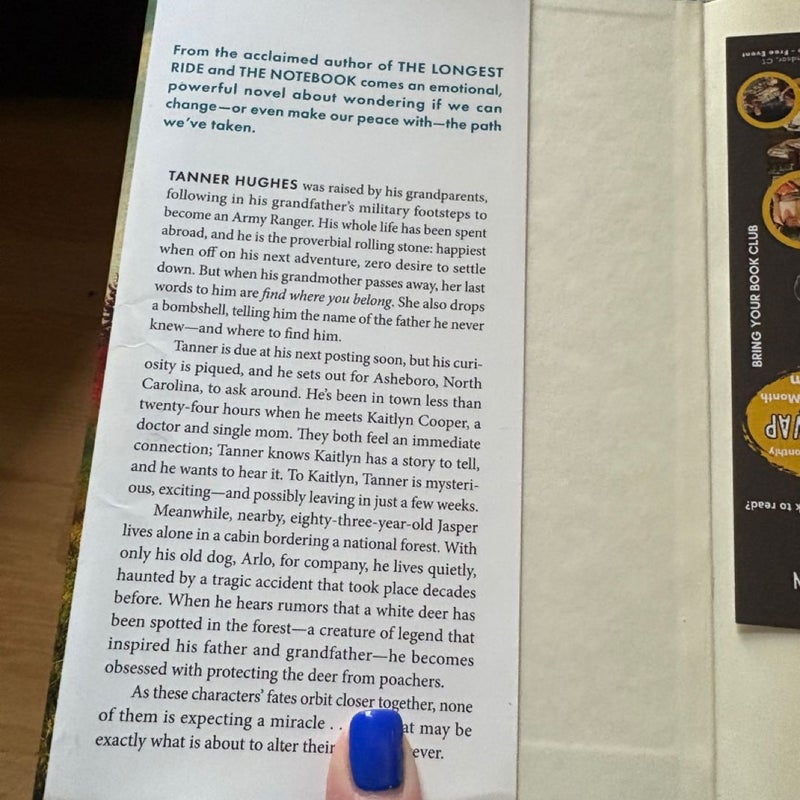 From the acclaimed author of THE LONGEST
RIDE and THE NOTEBOOK comes an emotional,
powerful novel about wondering if we can
change—or even make our peace with—the path
we've taken.
TANNER HUGHES was raised by his grandparents,
following in his grandfather's military footsteps to
become an Army Ranger. His whole life has been spent
abroad, and he is the proverbial rolling stone: happiest
when off on his next adventure, zero desire to settle
down. But when his grandmother passes away, her last
words to him are find where you belong. She also drops
a bombshell, telling him the name of the father he never
knew—and where to find him.
Tanner is due at his next posting soon, but his curi-
osity is piqued, and he sets out for Asheboro, North
Carolina, to ask around. He's been in town less than
twenty-four hours when he meets Kaitlyn Cooper, a
doctor and single mom. They both feel an immediate
connection; Tanner knows Kaitlyn has a story to tell,
and he wants to hear it. To Kaitlyn, Tanner is mysteri-
ous, exciting—and possibly leaving in just a few weeks.
Meanwhile, nearby, eighty-three-year-old Jasper
lives alone in a cabin bordering a national forest. With
only his old dog, Arlo, for company, he lives quietly,
haunted by a tragic accident that took place decades
before. When he hears rumors that a white deer has
been spotted in the forest—a creature of legend that
inspired his father and grandfather—he becomes
obsessed with protecting the deer from poachers.
As these characters' fates orbit closer together, none
of them is expecting a miracle . . at may be
exactly what is about to alter their ever.
BRING YOUR BOOK CLUB
k to read?
Month
- Free Event